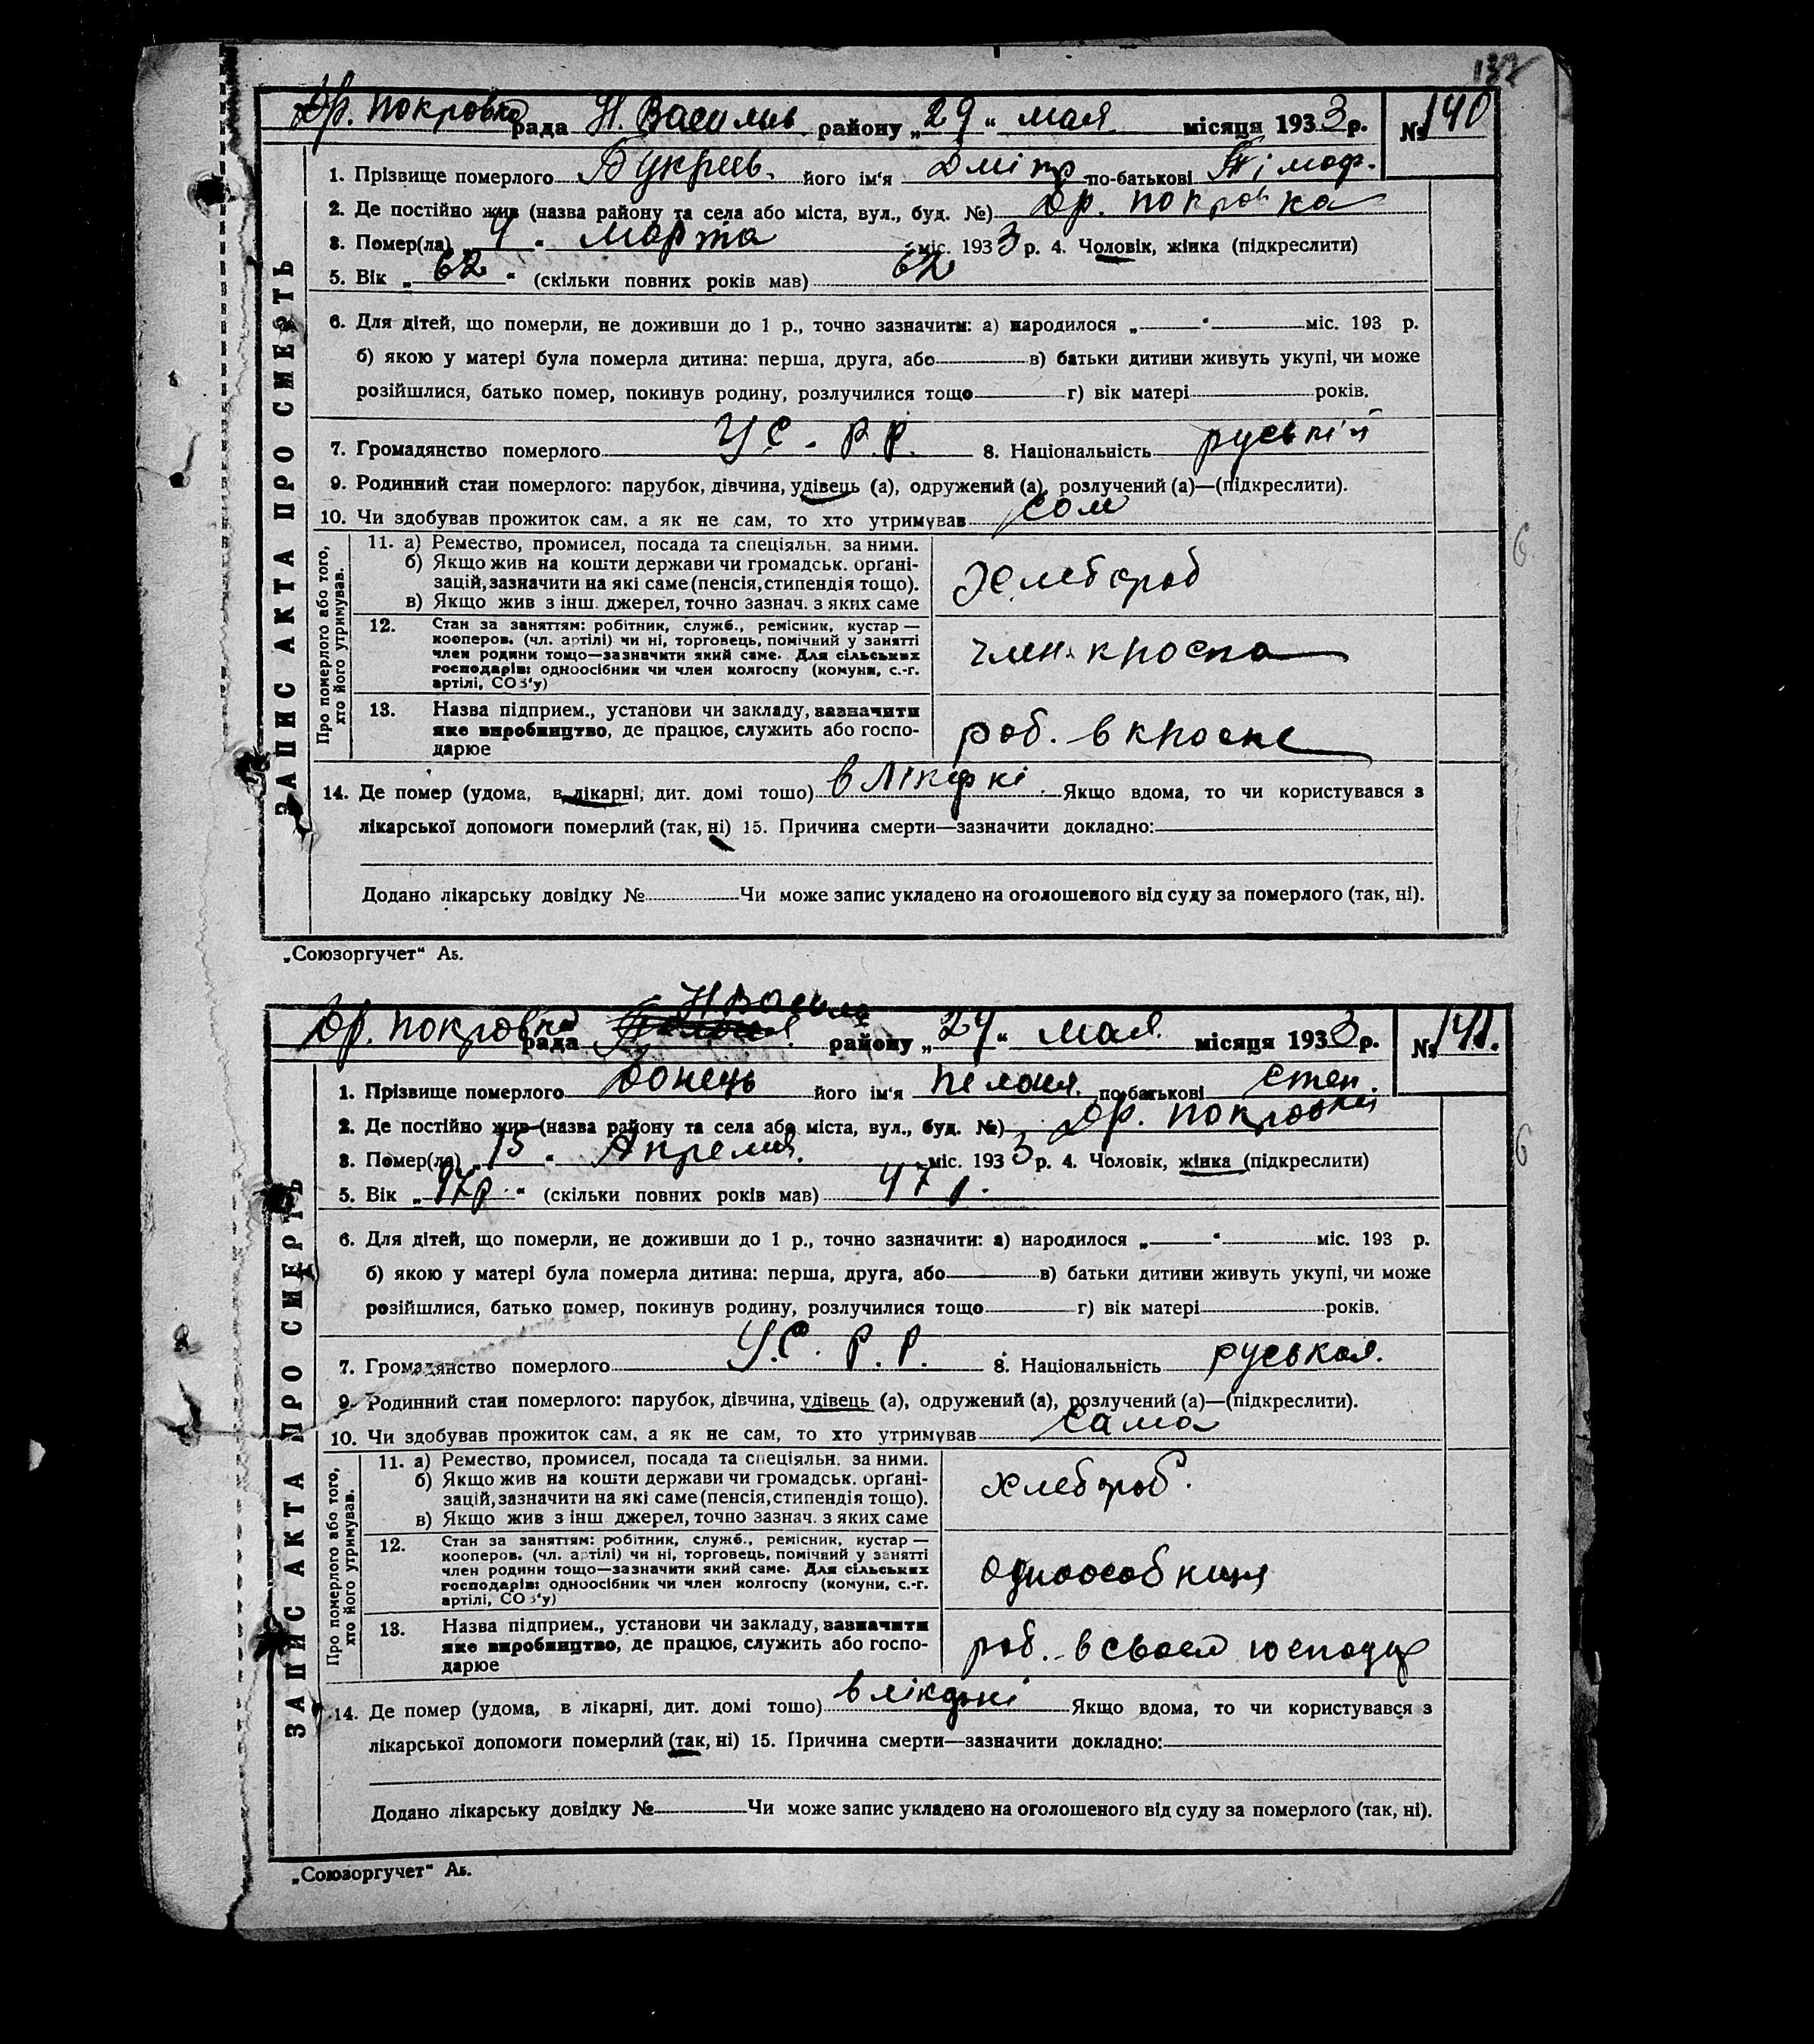 132
Др. Покровка рада Н. Василив району „29“ мая місяця 1933 р. № 140
1. Прізвище померлого Букреев. його ім'я Дмітр по-батькові Тімоф.
2. Де постійно жив (назва району та села або міста, вул., буд. №) Др. Покровка
3. Помер(ла) „4“ марта міс. 1933 р. 4. Чоловік, жінка (підкреслити)
5. Вік „62“ (скільки повних років мав) 62
6. Для дітей, що померли, не доживши до 1 р., точно зазначити: а) народилося „ “ міс. 193 р.
б) якою у матері була померла дитина: перша, друга, або в) батьки дитини живуть укупі, чи може
розійшлися, батько помер, покинув родину, розлучилися тощо г) вік матері років.
7. Громадянство померлого У.С.Р.Р. 8. Національність руський
9. Родинний стан померлого: парубок, дівчина, удівець (а), одружений (а), розлучений (а)—(підкреслити).
10. Чи здобував прожиток сам, а як не сам, то хто утримував сам
ЗАПИС АКТА ПРО СМЕРТЬ
Про померлого або того, хто його утримував.
11. а) Ремество, промисел, посада та спеціяльн. за ними.
б) Якщо жив на кошти держави чи громадськ. орґані-
зацій, зазначити на які саме (пенсія, стипендія тощо).
в) Якщо жив з інш. джерел, точно зазнач. з яких саме
хлебороб
12. Стан за заняттям: робітник, служб., ремісник, кустар —
кооперов. (чл. артілі) чи ні, торговець, помічний у занятті
член родини тощо—зазначити який саме. Для сільських
господарів: одноосібник чи член колгоспу (комуни, с.-г.
артілі, СОЗ'у)
член
13. Назва підприєм., установи чи закладу, зазначити
яке виробництво, де працює, служить або госпо-
дарює
роб. в
14. Де помер (удома, в лікарні, дит. домі тощо) в лікарні Якщо вдома, то чи користувався з
лікарської допомоги померлий (так, ні) 15. Причина смерти—зазначити докладно:
Додано лікарську довідку № Чи може запис укладено на оголошеного від суду за померлого (так, ні).
„Союзоргучет“ Аб.
6
Др. Покровка рада Н Василів району „29“ мая. місяця 1933 р. № 141.
1. Прізвище померлого Донець його ім'я Пелагія по-батькові Степ.
2. Де постійно жив (назва району та села або міста, вул., буд. №) Др. Покровка
3. Помер(ла) „15“ Апреля. міс. 1933 р. 4. Чоловік, жінка (підкреслити)
5. Вік „47р.“ (скільки повних років мав) 47 р.
6. Для дітей, що померли, не доживши до 1 р., точно зазначити: а) народилося „ “ міс. 193 р.
б) якою у матері була померла дитина: перша, друга, або в) батьки дитини живуть укупі, чи може
розійшлися, батько помер, покинув родину, розлучилися тощо г) вік матері років.
7. Громадянство померлого У.С.Р.Р. 8. Національність руськая.
9. Родинний стан померлого: парубок, дівчина, удівець (а), одружений (а), розлучений (а)—(підкреслити).
10. Чи здобував прожиток сам, а як не сам, то хто утримував сама
ЗАПИС АКТА ПРО СМЕРТЬ
Про померлого або того, хто його утримував.
11. а) Ремество, промисел, посада та спеціяльн. за ними.
б) Якщо жив на кошти держави чи громадськ. орґані-
зацій, зазначити на які саме (пенсія, стипендія тощо).
в) Якщо жив з інш джерел, точно зазнач. з яких саме
хлебороб.
12. Стан за заняттям: робітник, служб., ремісник, кустар —
кооперов. (чл. артілі) чи ні, торговець, помічний у занятті
член родини тощо—зазначити який саме. Для сільських
господарів: одноосібник чи член колгоспу (комуни, с.-г.
артілі, СОЗ'у)
одноособниця
13. Назва підприєм., установи чи закладу, зазначити
яке виробництво, де працює, служить або госпо-
дарює
роб. в своем господ
14. Де помер (удома, в лікарні, дит. домі тощо) в лікарні Якщо вдома, то чи користувався з
лікарської допомоги померлий (так, ні) 15. Причина смерти—зазначити докладно:
Додано лікарську довідку № Чи може запис укладено на оголошеного від суду за померлого (так, ні).
„Союзоргучет“ Аб.
6